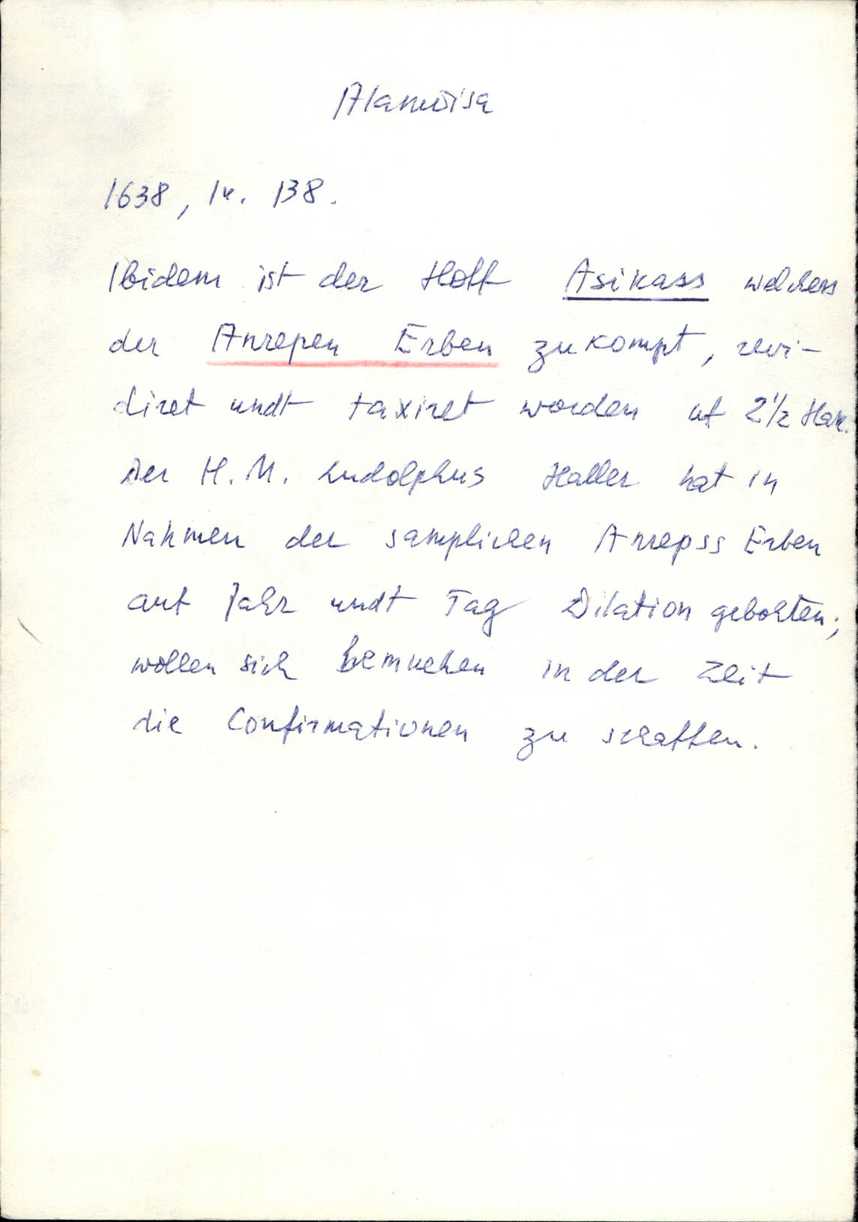 Alamõisa
1638, lk. 138.
Ibidem ist der Hoff Asikass welchess
der Anrepen Erben zukompt, revi-
diret undt taxiret worden uf 2 1/2 Hak.
Der H. M. Ludolphus Haller hat in
Nahmen der samplichen Anrepss Erben
auf Jahr undt Tag Dilation gebohten;
wollen sich bemuehen in der Zeit
die Confirmationen zu schaffen.